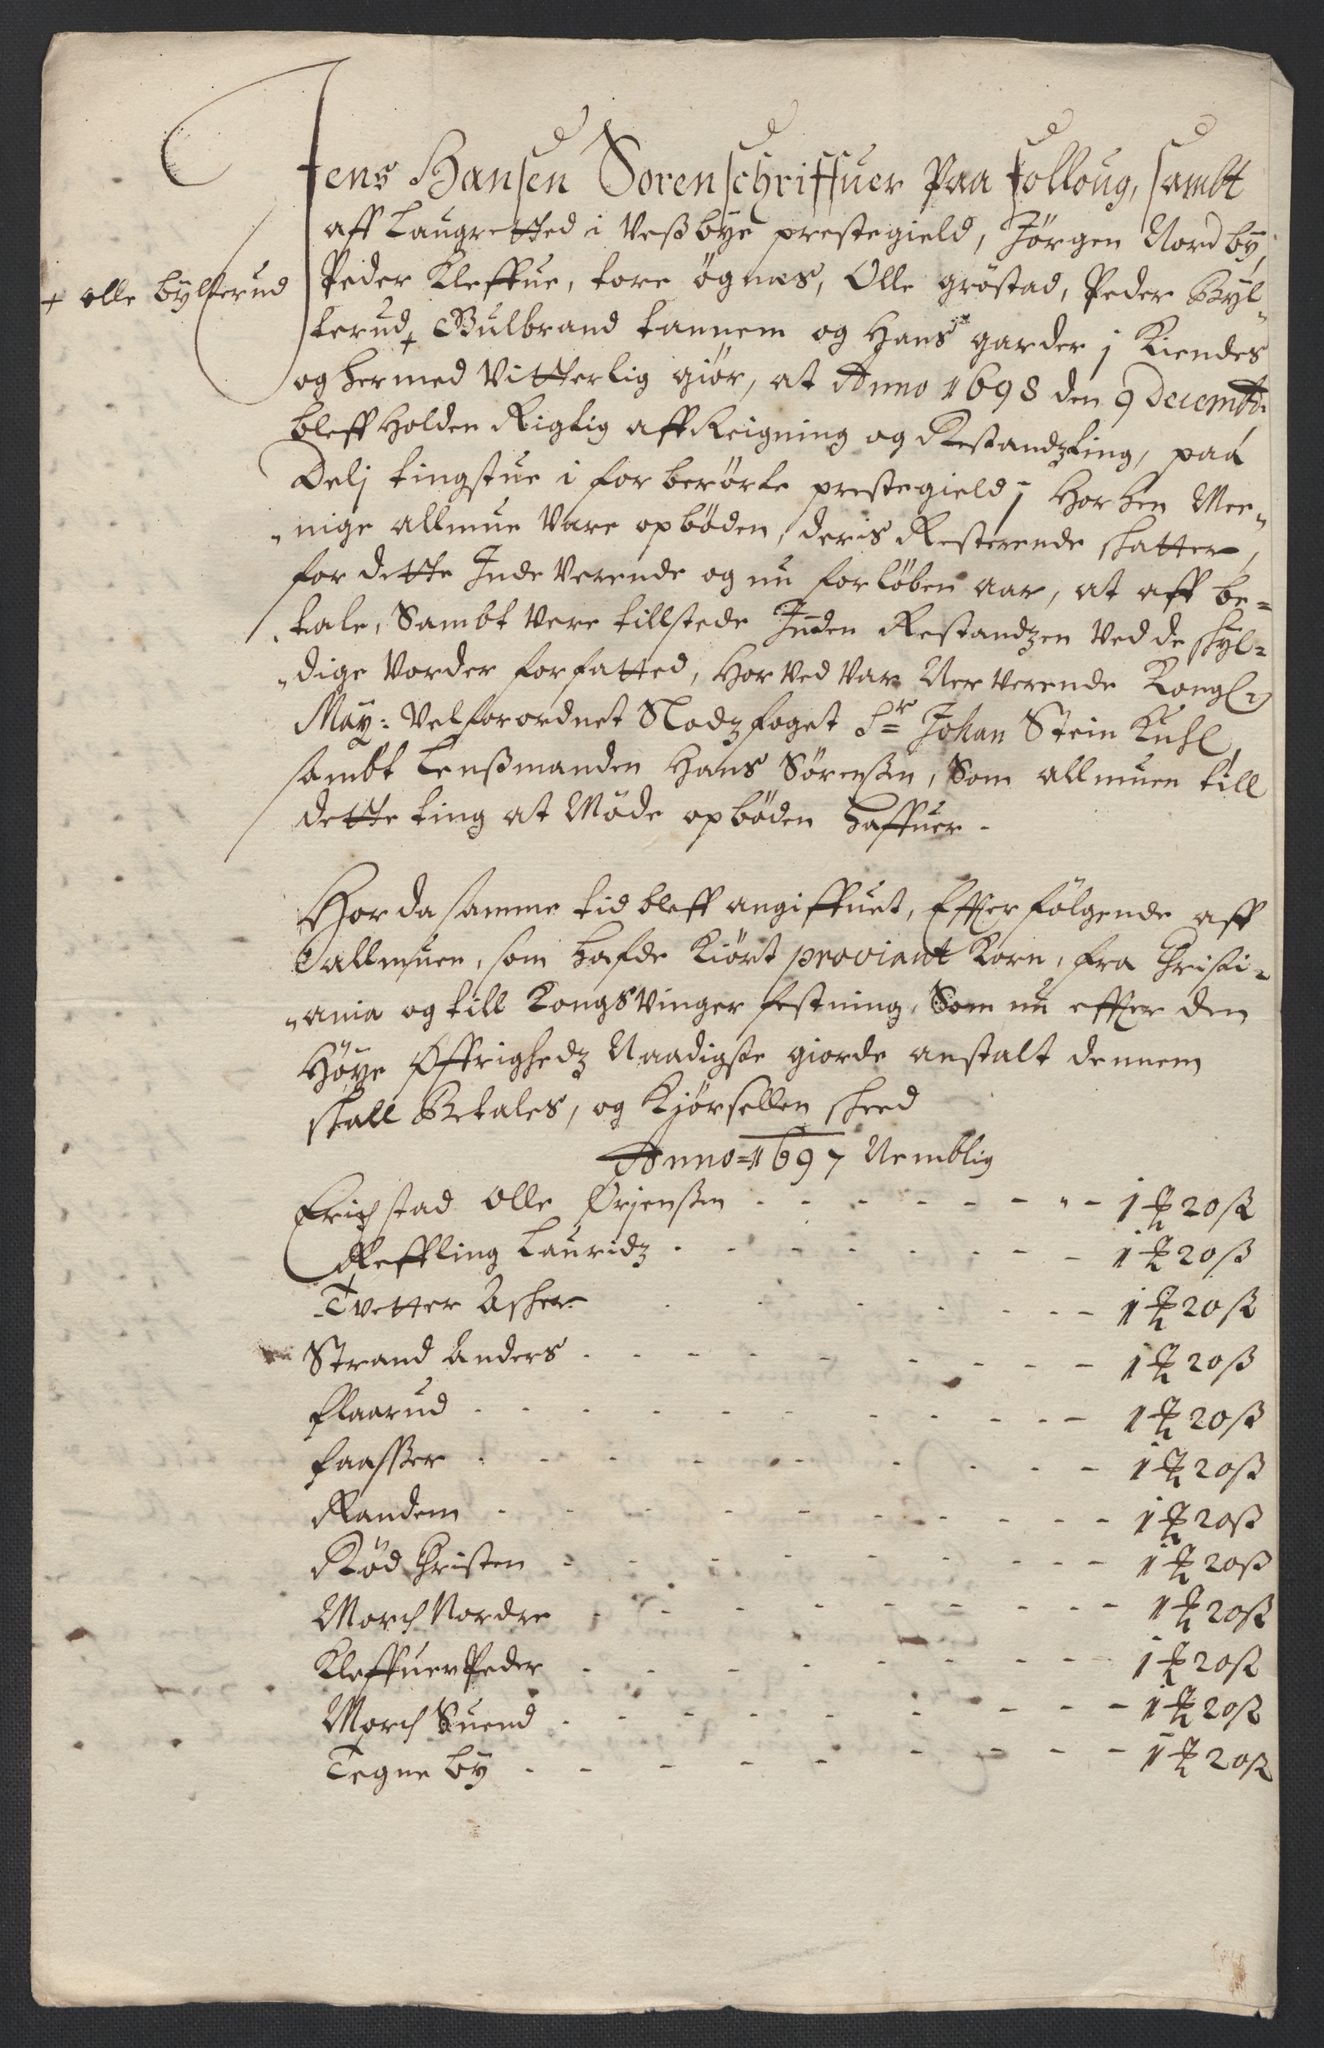 Jens Hansen Sorenschriffuer Paa Folloug, sambt
aff Laugretted i Veßbye prestegield, Jørgen Nordby,
+ Olle bylterud
Peder Kleffue, tore ögnæs, Olle gröstad, Peder Byl-
terud+ Gulbrand tannem og Hans garder j Kiendes
og hermed Vitterlig giör, at Anno 1698 den 9 Decembr:
bleff Holden Rigtig aff Reigning og Restandzting, paa
Delj tingstue i for berörte prestegield j Hor hen Mee-
nige Allmue Vare opböden, deris Resterende skatter,
for dette Inde Verende og nu forlöben aar, at aff be-
tale, Sambt Vere tillstede Inden Restandzen Ved de skyl-
dige Vorder forfatted, Hor Ved Var Nerverende Kongl:
May: Velforordnet Slodzfoget Sr Johan Stein Kuhl,
sambt Lenßmanden Hans Sörenßen, Som allmuen till
dette ting at Möde opböden haffuer.
Hor da samme tid bleff angiffuet, Effterfölgende aff
allmuen, som hafde Kiört proviant Korn, fra Christi-
ania og till Kongsvinger festning, Som nu effter den
Höye Øffrighedz Naadigste giorde anstalt dennem
skall Betales, og Kjörsellen skeed
Anno 1697 Nemblig
Erichstad Olle Örjenßen - - - - 1 ₰ 20 ß
Reffling Lauridz - - - - 1 ₰ 20 ß
Tvetter Asher - - - - 1 ₰ 20 ß
Strand Anders - - - - 1 ₰ 20 ß
flaarud - - - - 1 ₰ 20 ß
faaßer - - - - 1 ₰ 20 ß
Randem - - - - 1 ₰ 20 ß
Röd Christen - - - - 1 ₰ 20 ß
Morch Nordre - - - - 1 ₰ 20 ß
Kleffuer Peder - - - - 1 ₰ 20 ß
Morch Suend - - - - 1 ₰ 20 ß
Tegneby - - - - 1 ₰ 20 ß